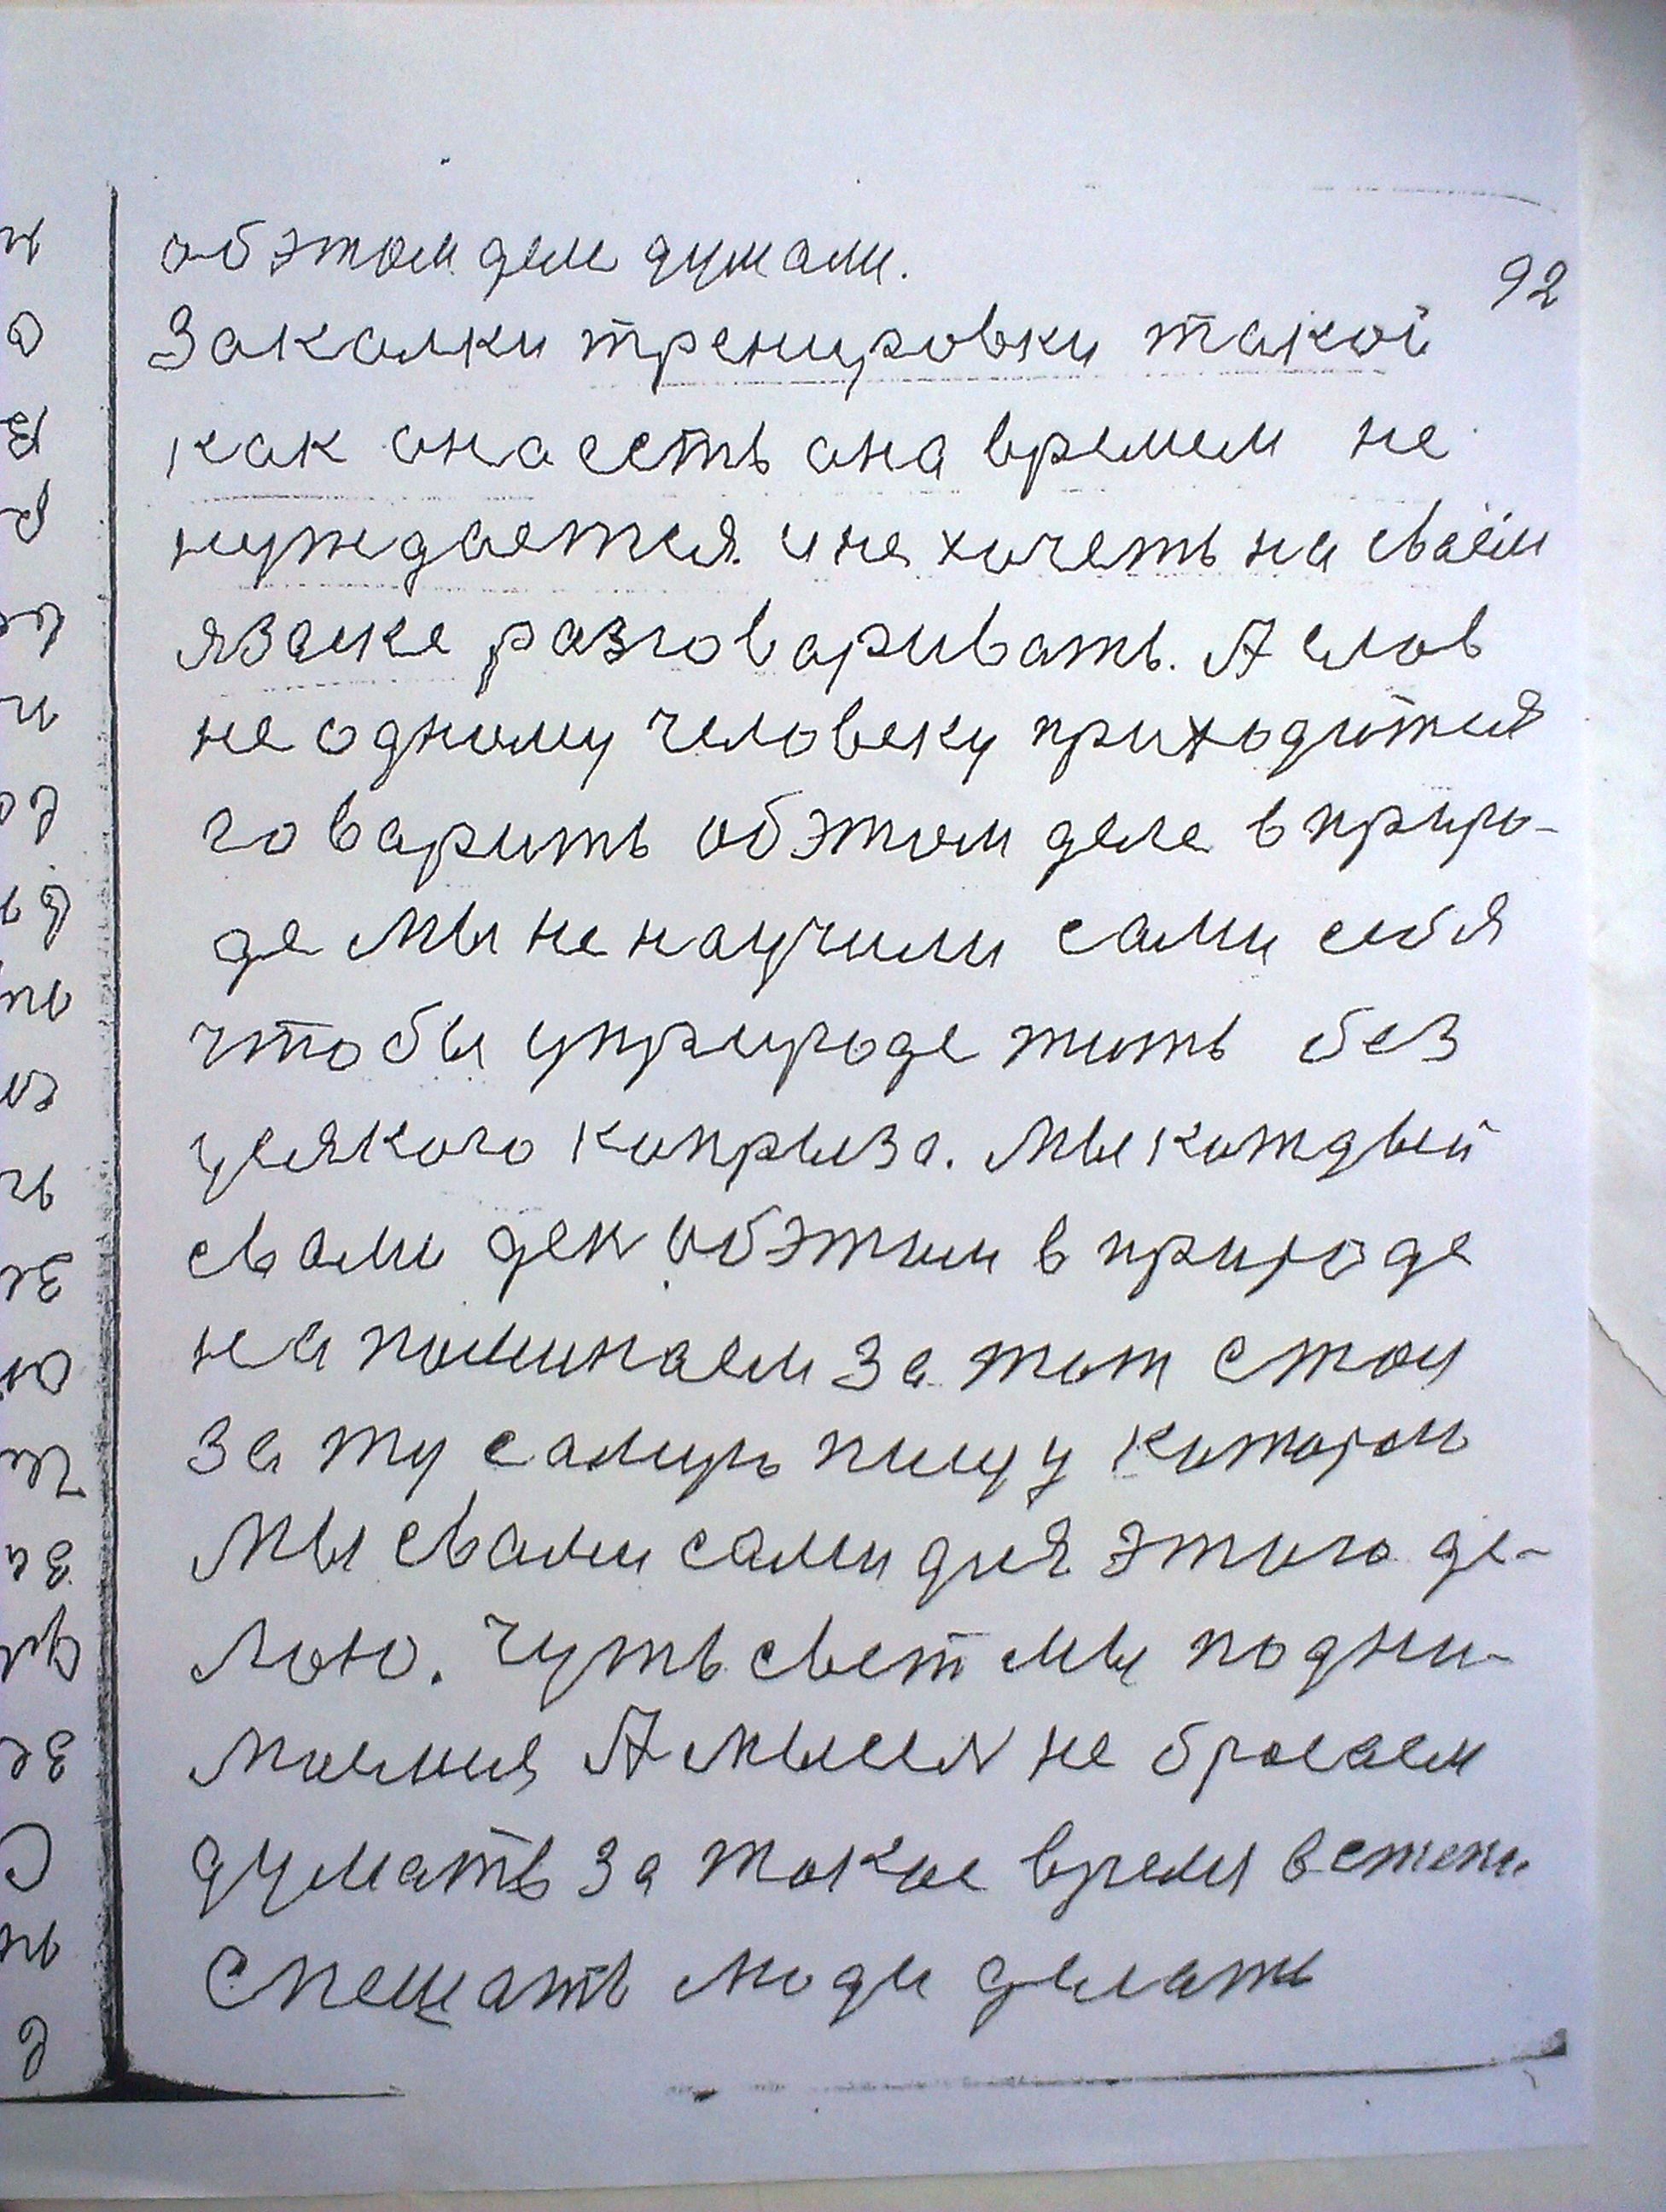 92
об этом деле думали.
Закалки тренировки такой
как она есть она времем не
нуждается. и не хочеть на сваём
языке разговаривать. А слов
не одному человеку приходится
говарить об этом деле в приро-
де мы не научили сами себя
чтобы у природе жить без
усякого каприза. Мы каждый
свами ден об этом в природе
на поминаем за тот стол
за ту самую пищу котором
мы свами сами для этого де-
лою. Чуть свет мы подни-
маемся А мысел не бросаем
думать за такое время в степи
Спешать люди делать